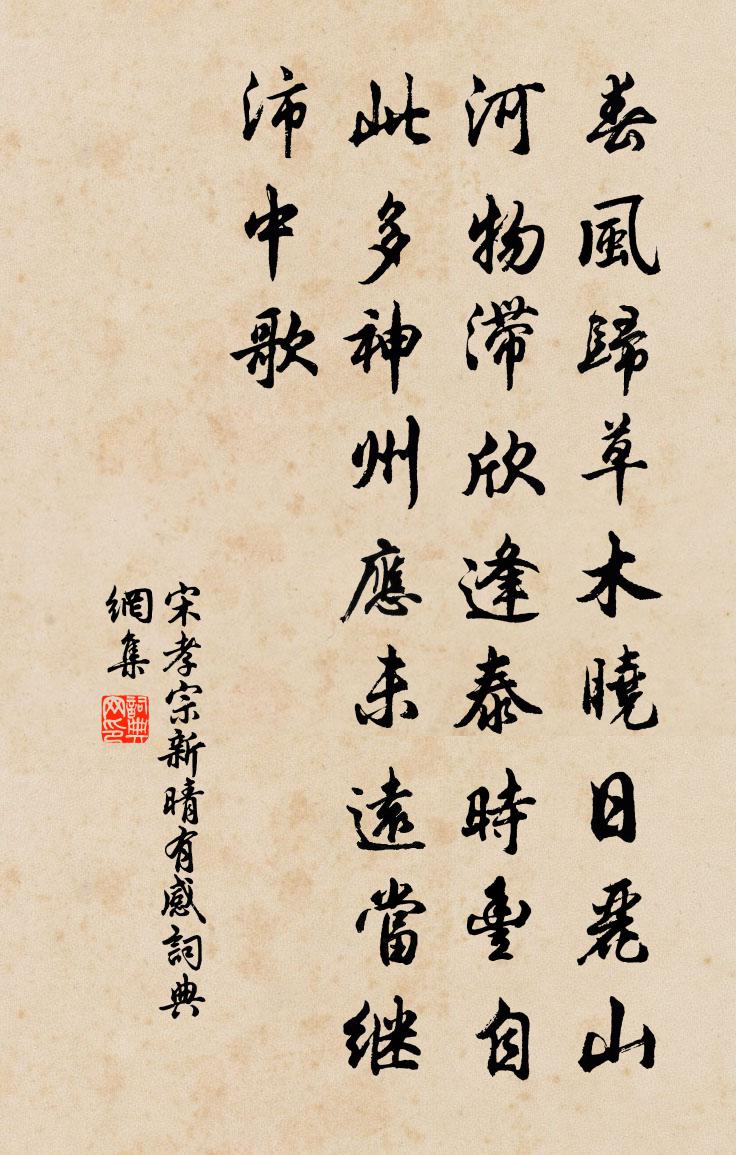 春風歸草木曉日麗山
河物滯欣逢泰時豐自
此多神州應未遠當继
沛中歌
宋孝宗新晴有感詞典
網集
詞典
网印